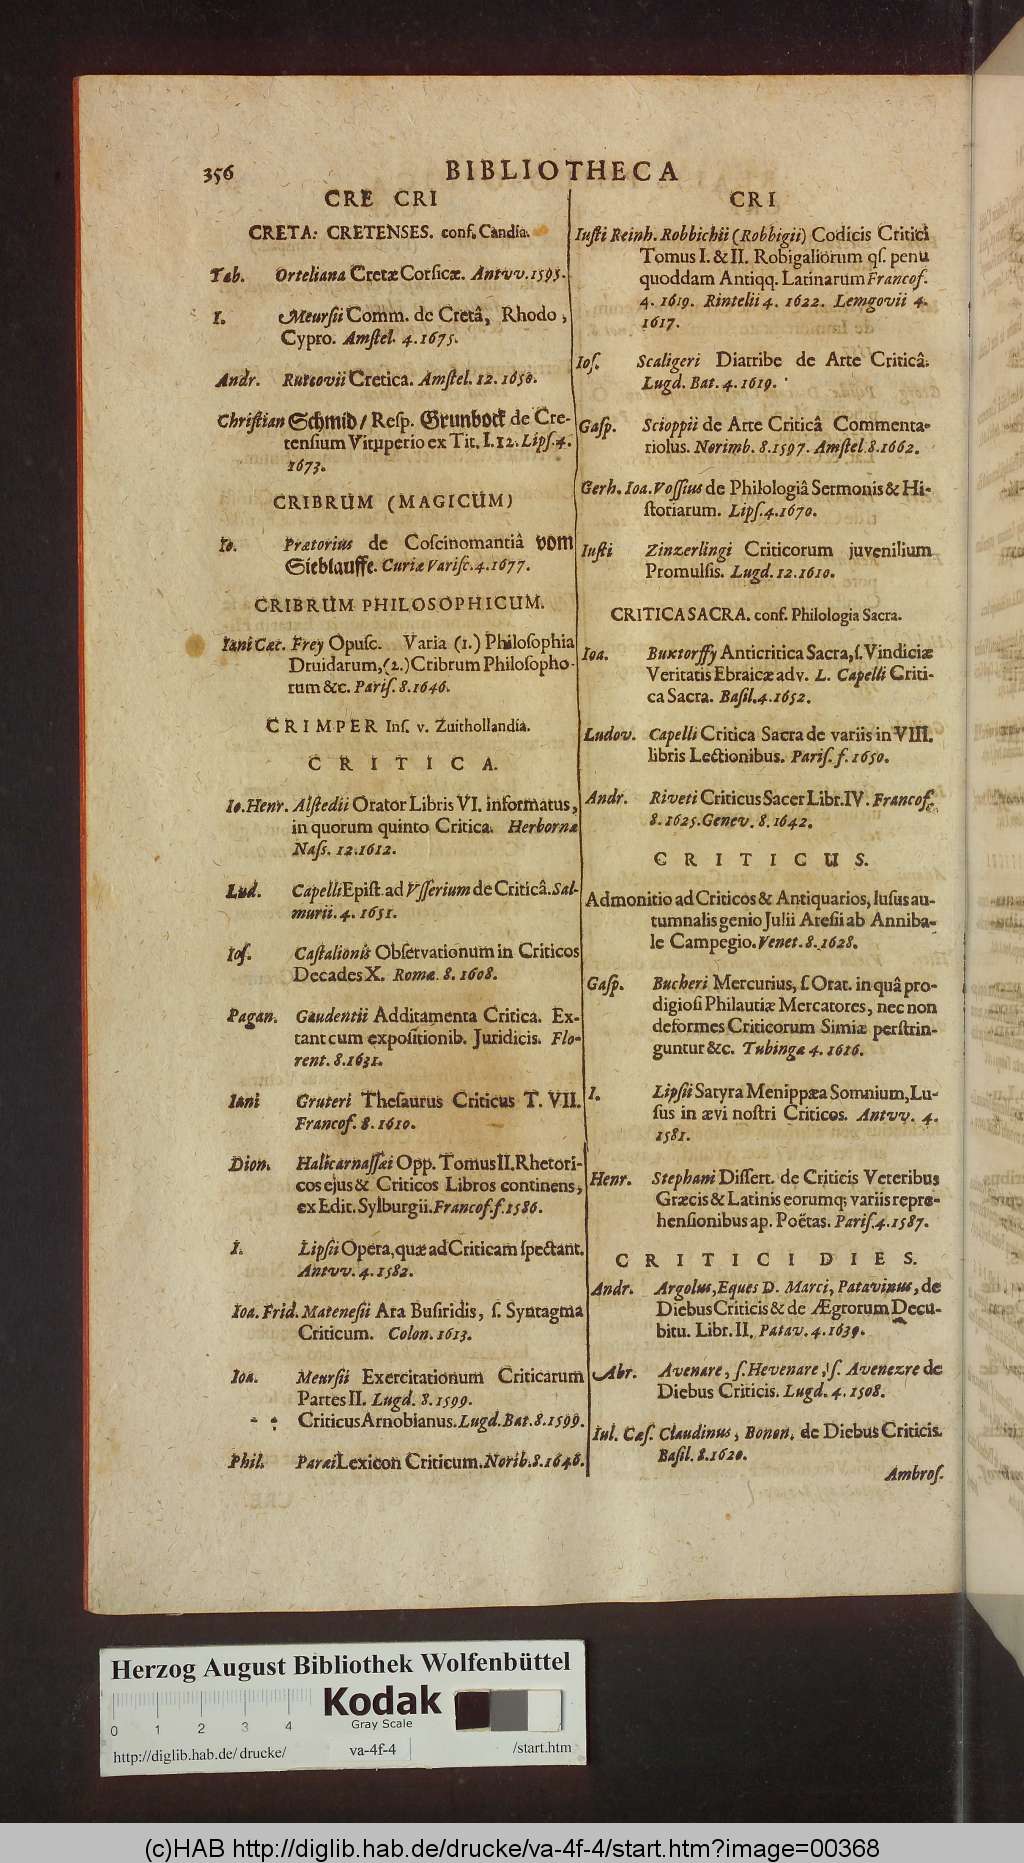 356
BIBLIOTHECA
CRE CRI
CRETA: CRETENSES. conf. Candia.
Tab. Orteliana Cretæ Corsicæ. Antvv. 1595.
I. Meursii Comm. de Cretâ, Rhodo,
Cypro. Amstel. 4. 1675.
Andr. Rutcovii Cretica. Amstel. 12. 1650.
Christian Schmid / Resp. Grunbock de Cre-
tensium Vituperio ex Tit. I. 12. Lips. 4.
1673.
CRIBRUM (MAGICUM)
Io. Prætorius de Coscinomantiâ vom
Sieblauffe. Curiæ Varisc. 4. 1677.
CRIBRUM PHILOSOPHICUM.
Iani Cæc. Frey Opusc. Varia (1.) Philosophia
Druidarum, (2.) Cribrum Philosopho-
rum &c. Paris. 8. 1646.
CRIMPER Ins. v. Zuithollandia.
CRITICA.
Io. Henr. Alstedii Orator Libris VI. informatus,
in quorum quinto Critica. Herbornæ
Nass. 12. 1612.
Lud. Capelli Epist. ad Usserium de Criticâ. Sal-
murii. 4. 1651.
Ios. Castalionis Observationum in Criticos
Decades X. Romæ. 8. 1608.
Pagan. Gaudentii Additamenta Critica. Ex-
tant cum expositionib. Juridicis. Flo-
rent. 8. 1631.
Iani Gruteri Thesaurus Criticus T. VII.
Francof. 8. 1610.
Dion. Halicarnassæi Opp. Tomus II. Rhetori-
cos ejus & Criticos Libros continens,
ex Edit. Sylburgii. Francof. f. 1586.
I. Lipsii Opera, quæ ad Criticam spectant.
Antvv. 4. 1582.
Ioa. Frid. Matenesii Ara Busiridis, s. Syntagma
Criticum. Colon. 1613.
Ioa. Meursii Exercitationum Criticarum
Partes II. Lugd. 8. 1599.
- - Criticus Arnobianus. Lugd. Bat. 8. 1599.
Phil. Paræi Lexicon Criticum. Norib. 8. 1646.
CRI
Iusti Reinh. Robbichii (Robbigii) Codicis Critici
Tomus I. & II. Robigaliorum qs. penu
quoddam Antiqq. Latinarum Francof.
4. 1619. Rintelii 4. 1622. Lemgovii 4.
1617.
Ios. Scaligeri Diatribe de Arte Criticâ.
Lugd. Bat. 4. 1619.
Gasp. Scioppii de Arte Criticâ Commenta-
riolus. Norimb. 8. 1597. Amstel. 8. 1662.
Gerh. Ioa. Vossius de Philologiâ Sermonis & Hi-
storiarum. Lips. 4. 1670.
Iusti Zinzerlingi Criticorum juvenilium
Promulsis. Lugd. 12. 1610.
CRITICA SACRA. conf. Philologia Sacra.
Ioa. Buxtorffy Anticritica Sacra, s. Vindiciæ
Veritatis Ebraicæ adv. L. Capelli Criti-
ca Sacra. Basil. 4. 1652.
Ludov. Capelli Critica Sacra de variis in VIII.
libris Lectionibus. Paris. f. 1650.
Andr. Riveti Criticus Sacer Libr. IV. Francof.
8. 1625. Genev. 8. 1642.
CRITICUS.
Admonitio ad Criticos & Antiquarios, lusus au-
tumnalis genio Julii Aresii ab Anniba-
le Campegio. Venet. 8. 1628.
Gasp. Bucheri Mercurius, s. Orat. in quâ pro-
digiosi Philautiæ Mercatores, nec non
deformes Criticorum Simiæ perstrin-
guntur &c. Tubingæ 4. 1616.
I. Lipsii Satyra Menippæa Somnium, Lu-
sus in ævi nostri Criticos. Antvv. 4.
1581.
Henr. Stephani Dissert. de Criticis Veteribus
Græcis & Latinis eorumq; variis repre-
hensionibus ap. Poëtas. Paris. 4. 1587.
CRITICI DIES.
Andr. Argolus, Eques D. Marci, Patavinus, de
Diebus Criticis & de Ægrorum Decu-
bitu. Libr. II. Patav. 4. 1639.
Abr. Avenare, s. Hevenare, s. Avenezre de
Diebus Criticis. Lugd. 4. 1508.
Iul. Cæs. Claudinus, Bonon. de Diebus Criticis.
Basil. 8. 1620.
Ambros.
Herzog August Bibliothek Wolfenbüttel
Kodak
Gray Scale
0 1 2 3 4
http://diglib.hab.de/drucke/ va-4f-4 /start.htm
(c)HAB http://diglib.hab.de/drucke/va-4f-4/start.htm?image=00368